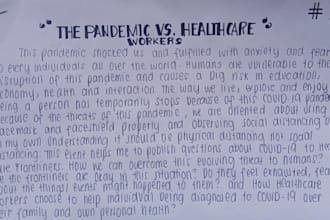 "THE PANDEMIC VS. HEALTHCARE"
#
WORKERS
This pandemic shocked us and fulfilled with anxiety and fear
every individuals all over the world. Humans are vulnerable to the
disruption of this pandemic and causes a big risk in education,
economy, health and interaction. The way we live, explore and enjoy
being a person has temporarily stops because of this COVID-19 pande
because of the threats of this pandemic, we are oriented about using
facemask and faceshield properly and observing social distancing
my own understanding it should be physical distancing not social
distancing. This event helps me to publish questions about COVID-19 to He
the frontliners. How we can overcome this evolving threat to humans?
the frontliners are okay in this situation? Do they feel exhausted, fea
out the things/events might happened to them? and How Healthcare
orkers choose to help individual being diagnosed to COVID-19 over
eir family and own personal health?